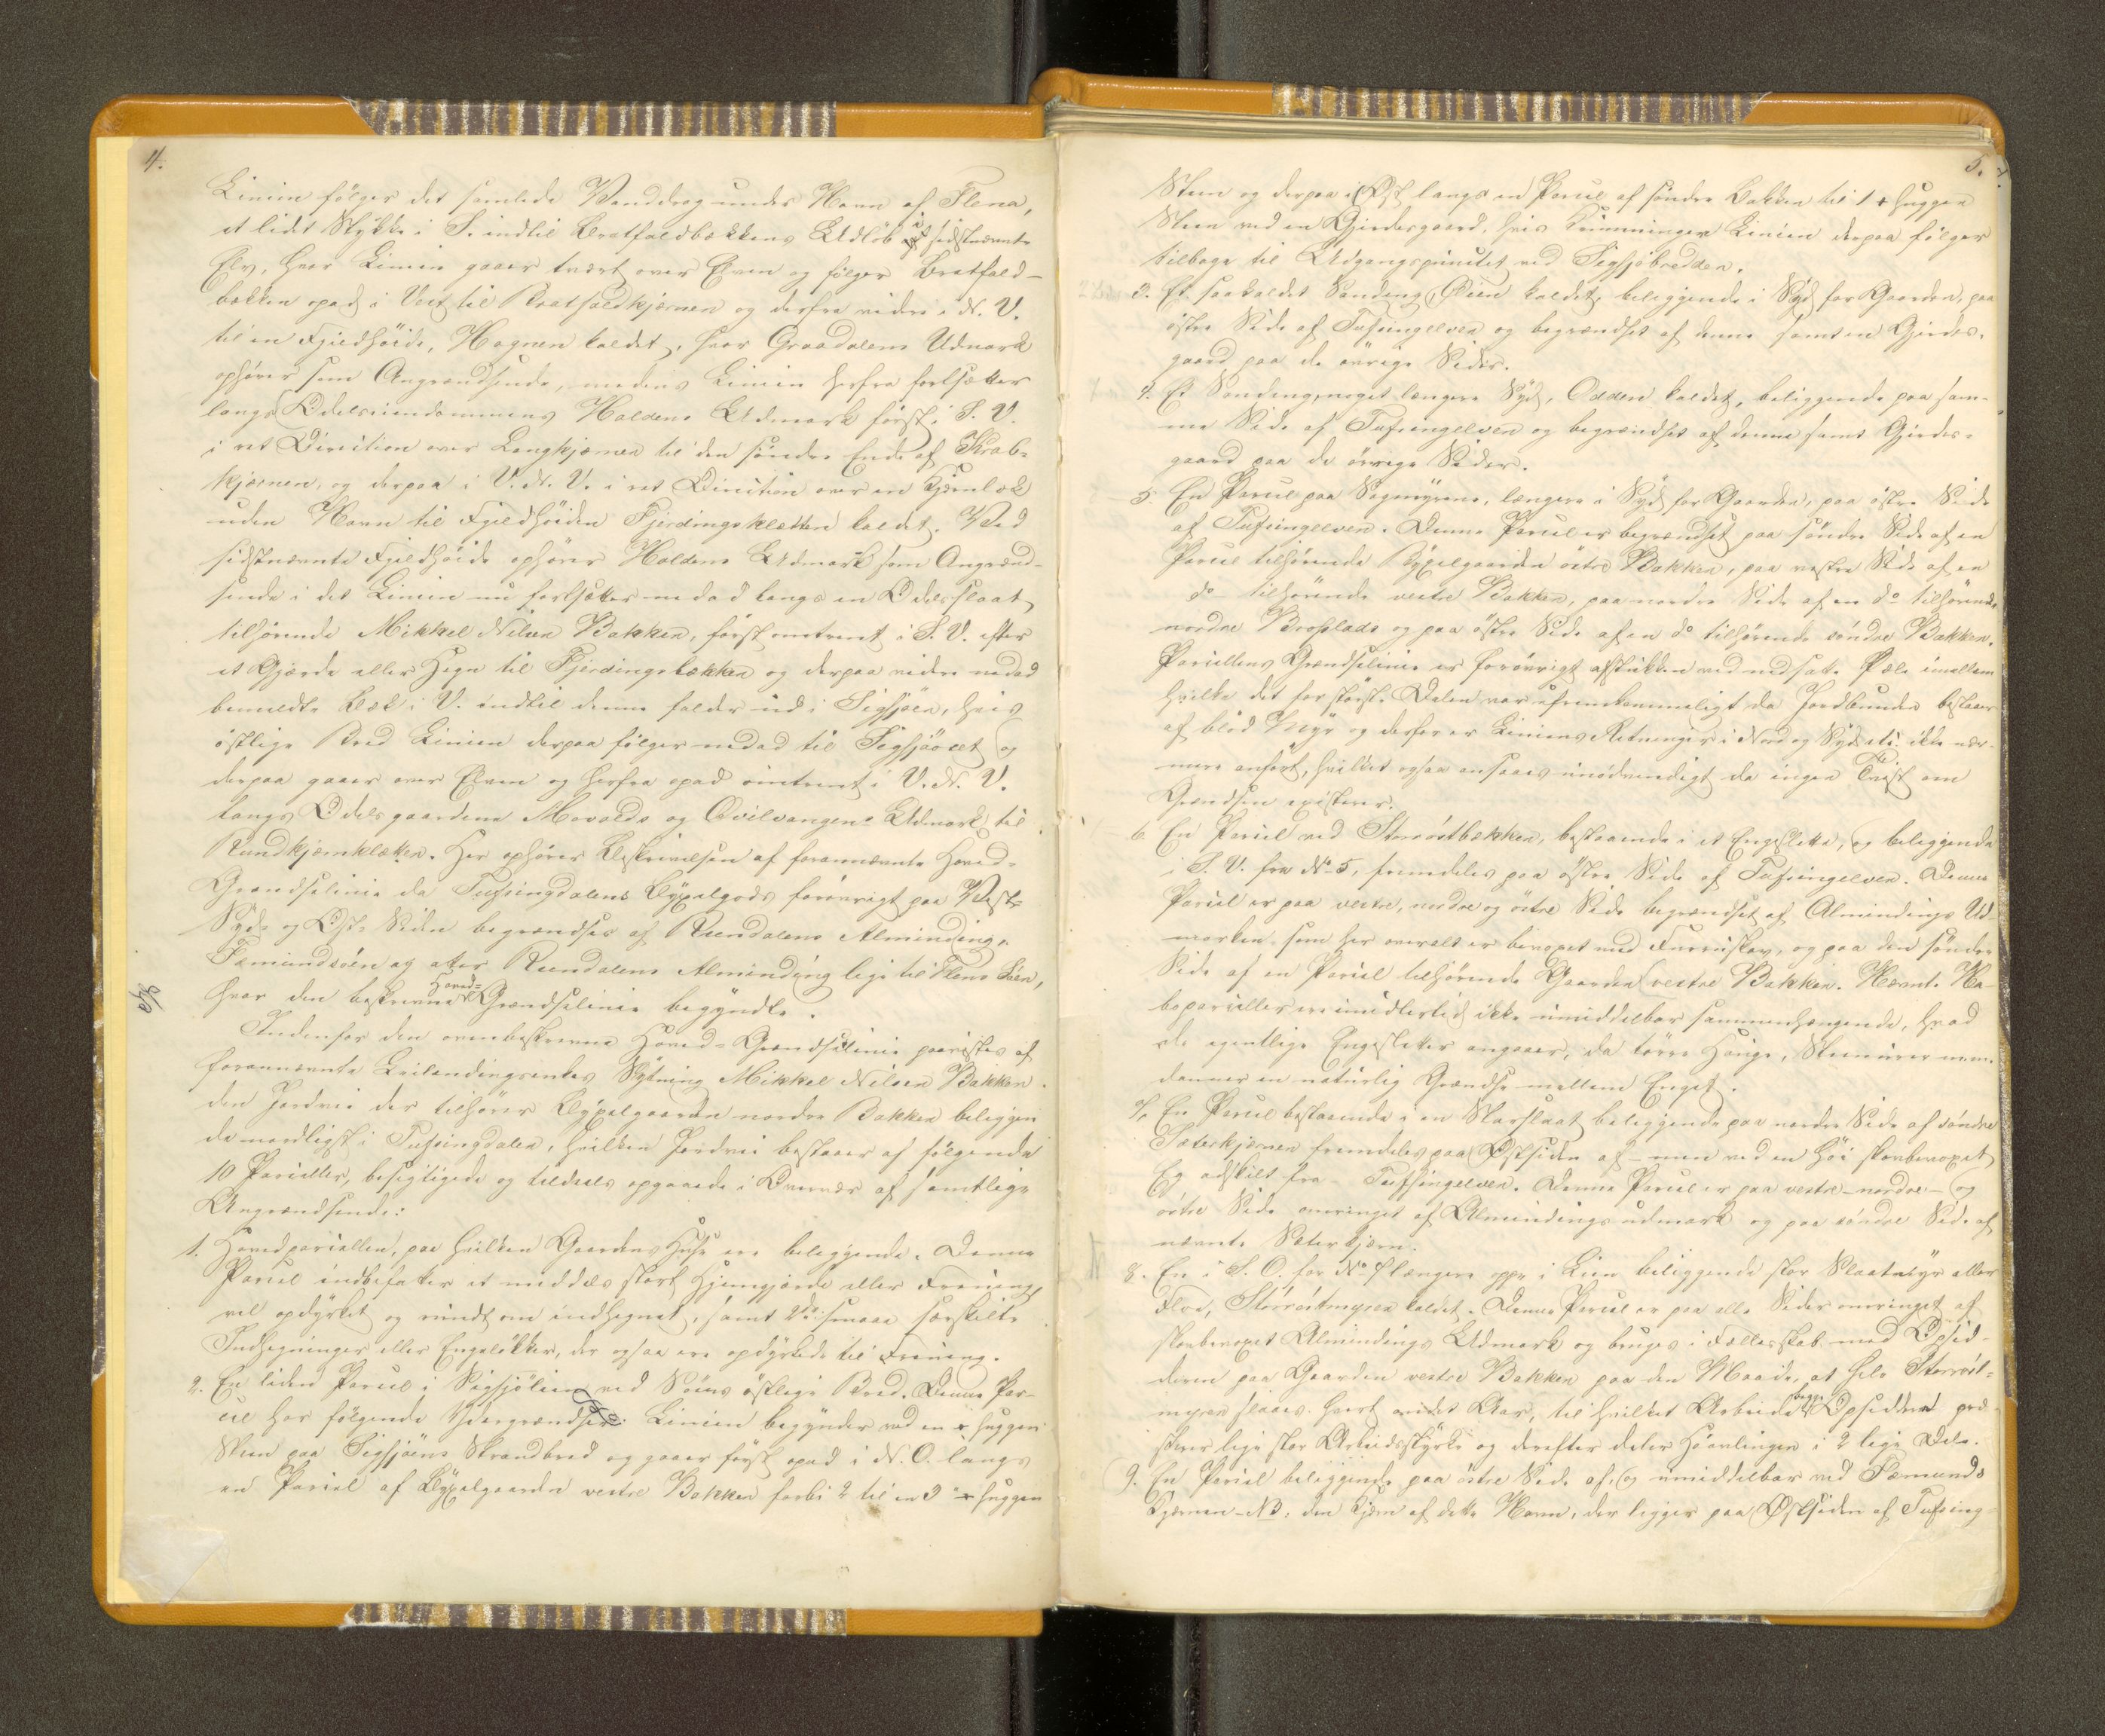 4.
Linien følger det samlede Vanddrag under Navn af Flena,
et lidet Stykke i S. indtil Bratfaldbækkens Udløb i sidstnævnte
Elv, hvor Linien gaaer tvært over Elven og følger Bratfald-
bækken opad i Vest til Bratfaldkjernen og derfra videre i N. V.
til en Fjeldhöide, Hognen kaldet, hvor Graadalens Udmark
ophører som Angrændsende, medens Linien herfra fortsætter
langs Odelseiendommens Holdens Udmark først i S. V.
i ret Direction over Langkjernen til den søndre Ende af Krab-
kjernen, og derpaa i V. N. V. i ret Direction over en Kjernbæk
uden Navn til Fjeldhøiden Fjerdingsklætten kaldet. Ved
sidstnævnte Fjeldhøide ophører Holdens Udmark som Angrænd-
sende i det Linien nu fortsætter nedad langs en Odelsslaat
tilhørende Mikkel Nilsen Bakken, først omtrent i S. V. efter
et Gjærde eller Hegn til Fjerdingsbækken og derpaa videre nedad
bemeldte Bæk i V. indtil denne falder ud i Sigsjøen, hvis
østlige Bred Linien derpaa følger nedad til Sigsjøoset og
derpaa gaaer over Elven og herfra opad omtrent i V. N. V.
langs Odelsgaardene Movolds og Qvilvangens Udmark til
Rundkjernklæken. Her ophører Beskrivelsen af forannævnte Hoved-
Grændselinie da Tufsingdalens Bygselgods forøvrigt paa Vest-
Syd- og Øst- Siden begrændses af Rundalens Alminding,
Fæmundsøen og atter Rundalens Alminding lige til Flens Søen,
hvor den beskrevne Hoved- Grændselinie begyndte.
Indenfor den ovenbeskrevne Hoved-Grændselinie paavistes af
forannævnte Leilendingsenkes Sytning Mikkel Nilsen Bakken
den Jordvei der tilhører Bygselgaarden nordre Bakken beliggen
de nordligst i Tufsingdalen, hvilken Jordvei bestaaer af følgende
10 Parceller, besigtigede og tildeels opgaaede i Overvær af samtlige
Angrændsende:
1. Hovedparcellen, paa hvilken Gaardens Huse ere beliggende. Denne
Parcel indbefatter et middels stort Hjemgjorde eller Frøeng,
vel opdyrket og rundt om indhegnet, samt 2de smaae særskilte
Indhegninger eller Engeløkker, der ogsaa ere opdyrkede til Frøeng.
2. En liden Parcel i Sigsjølien ved Søens østlige Bred. Denne Par-
cel har følgende Grændser: Linien begynder ved en + huggen
Steen paa Sigsjøens Strandbred og gaaer først opad i N. O. langs
en Parcel af Bygselgaarden vestre Bakken forbi 2 til en 3 + huggen
5.
Steen og derpaa i Øst langs en Parcel af søndre Bakken til 1 + huggen
Steen ved en Gjerdesgaard, hvis Krumninger Linien derpaa følger
tilbage til Udgangspunctet ved Sigsjøbredden.
3. Et saakaldet Vonding, Øien kaldet, beliggende i Syd for Gaarden, paa
østre Side af Tufsingelven og begrændset af denne samt en Gjerdes-
gaard paa de øvrige Sider.
4. Et Vonding, noget længere Syd, Odden kaldet, beliggende paa sam-
me Side af Tufsingelven og begrændset af denne samt Gjerdes-
gaard paa de øvrige Sider.
5. En Parcel paa Vegmyrene, længere i Syd for Gaarden, paa østre Side
af Tufsingelven. Denne Parcel er begrændset paa søndre Side af en
Parcel tilhørende Bygselgaarden østre Bakken, paa vestre Side af en
do tilhørende vestre Bakken, paa nordre Side af en do tilhørende
nordre Broplads og paa østre Side af en do tilhørende søndre Bakken.
Parcellens Grændselinie er forøvrigt afstukken ved nedsatte Pæle imellem
hvilke det for største Delen var ufremkommeligt da Jordbunden bestaaer
af blød Myr og derfor er Liniens Retninger i Nord og Syd etc. ikke nær-
mere anført, hvilket ogsaa ansaaes unødvendigt da ingen Tvist om
Grændsen existerer.
6. En Parcel ved Storröstbækken, bestaaende i et Engeslette, og beliggende
i S. V. fra No 5, fremdeles paa østre Side af Tufsingelven. Denne
Parcel er paa vestre, nordre og østre Side begrændset af Almindings Ud-
marken som her overalt er bevoxet med Furruskov, og paa den søndre
Side af en Parcel tilhørende Gaarden vestre Bakken. Nævnte Na-
boparceller ere imidlertid ikke umiddelbar sammenhængende, hvad
de egentlige Engesletter angaaer, da tørre Houge, Steenurer m.m.
danner en naturlig Grændse mellem Enget.
7. En Parcel bestaaende i en Starslaat beliggende paa nordre Side af søndre
Sæterkjernen fremdeles paa Østsiden af - men ved en høi skovbevoxet
Eg adskilt fra - Tufsingelven. Denne Parcel er paa vestre - nordre - og
østre Side omringet af Almindings udmark og paa søndre Side af
nævnte Sæterkjern.
8. En i S. O. for No 7 længere oppe i Lien beliggende stor Slaatmyr eller
Floe, Storröstmyren kaldet. Denne Parcel er paa alle Sider omringet af
skovbevoxet Almindings Udmark og bruges i Fællesskab med Opsid-
deren paa Gaarden vestre Bakken paa den Maade, at hele Storröst-
myren slaaes hvert andet Aar, til hvilket Arbeide begge Opsiddere præ-
sterer lige stor Arbeidsstyrke og derefter deles Høavlingen i 2 lige Dele.
9. En Parcel beliggende paa østre Side af, og umiddelbar ved Fæmunds
Kjernen - NB: den Kjern af dette Navn, der ligger paa Østsiden af Tufsing-